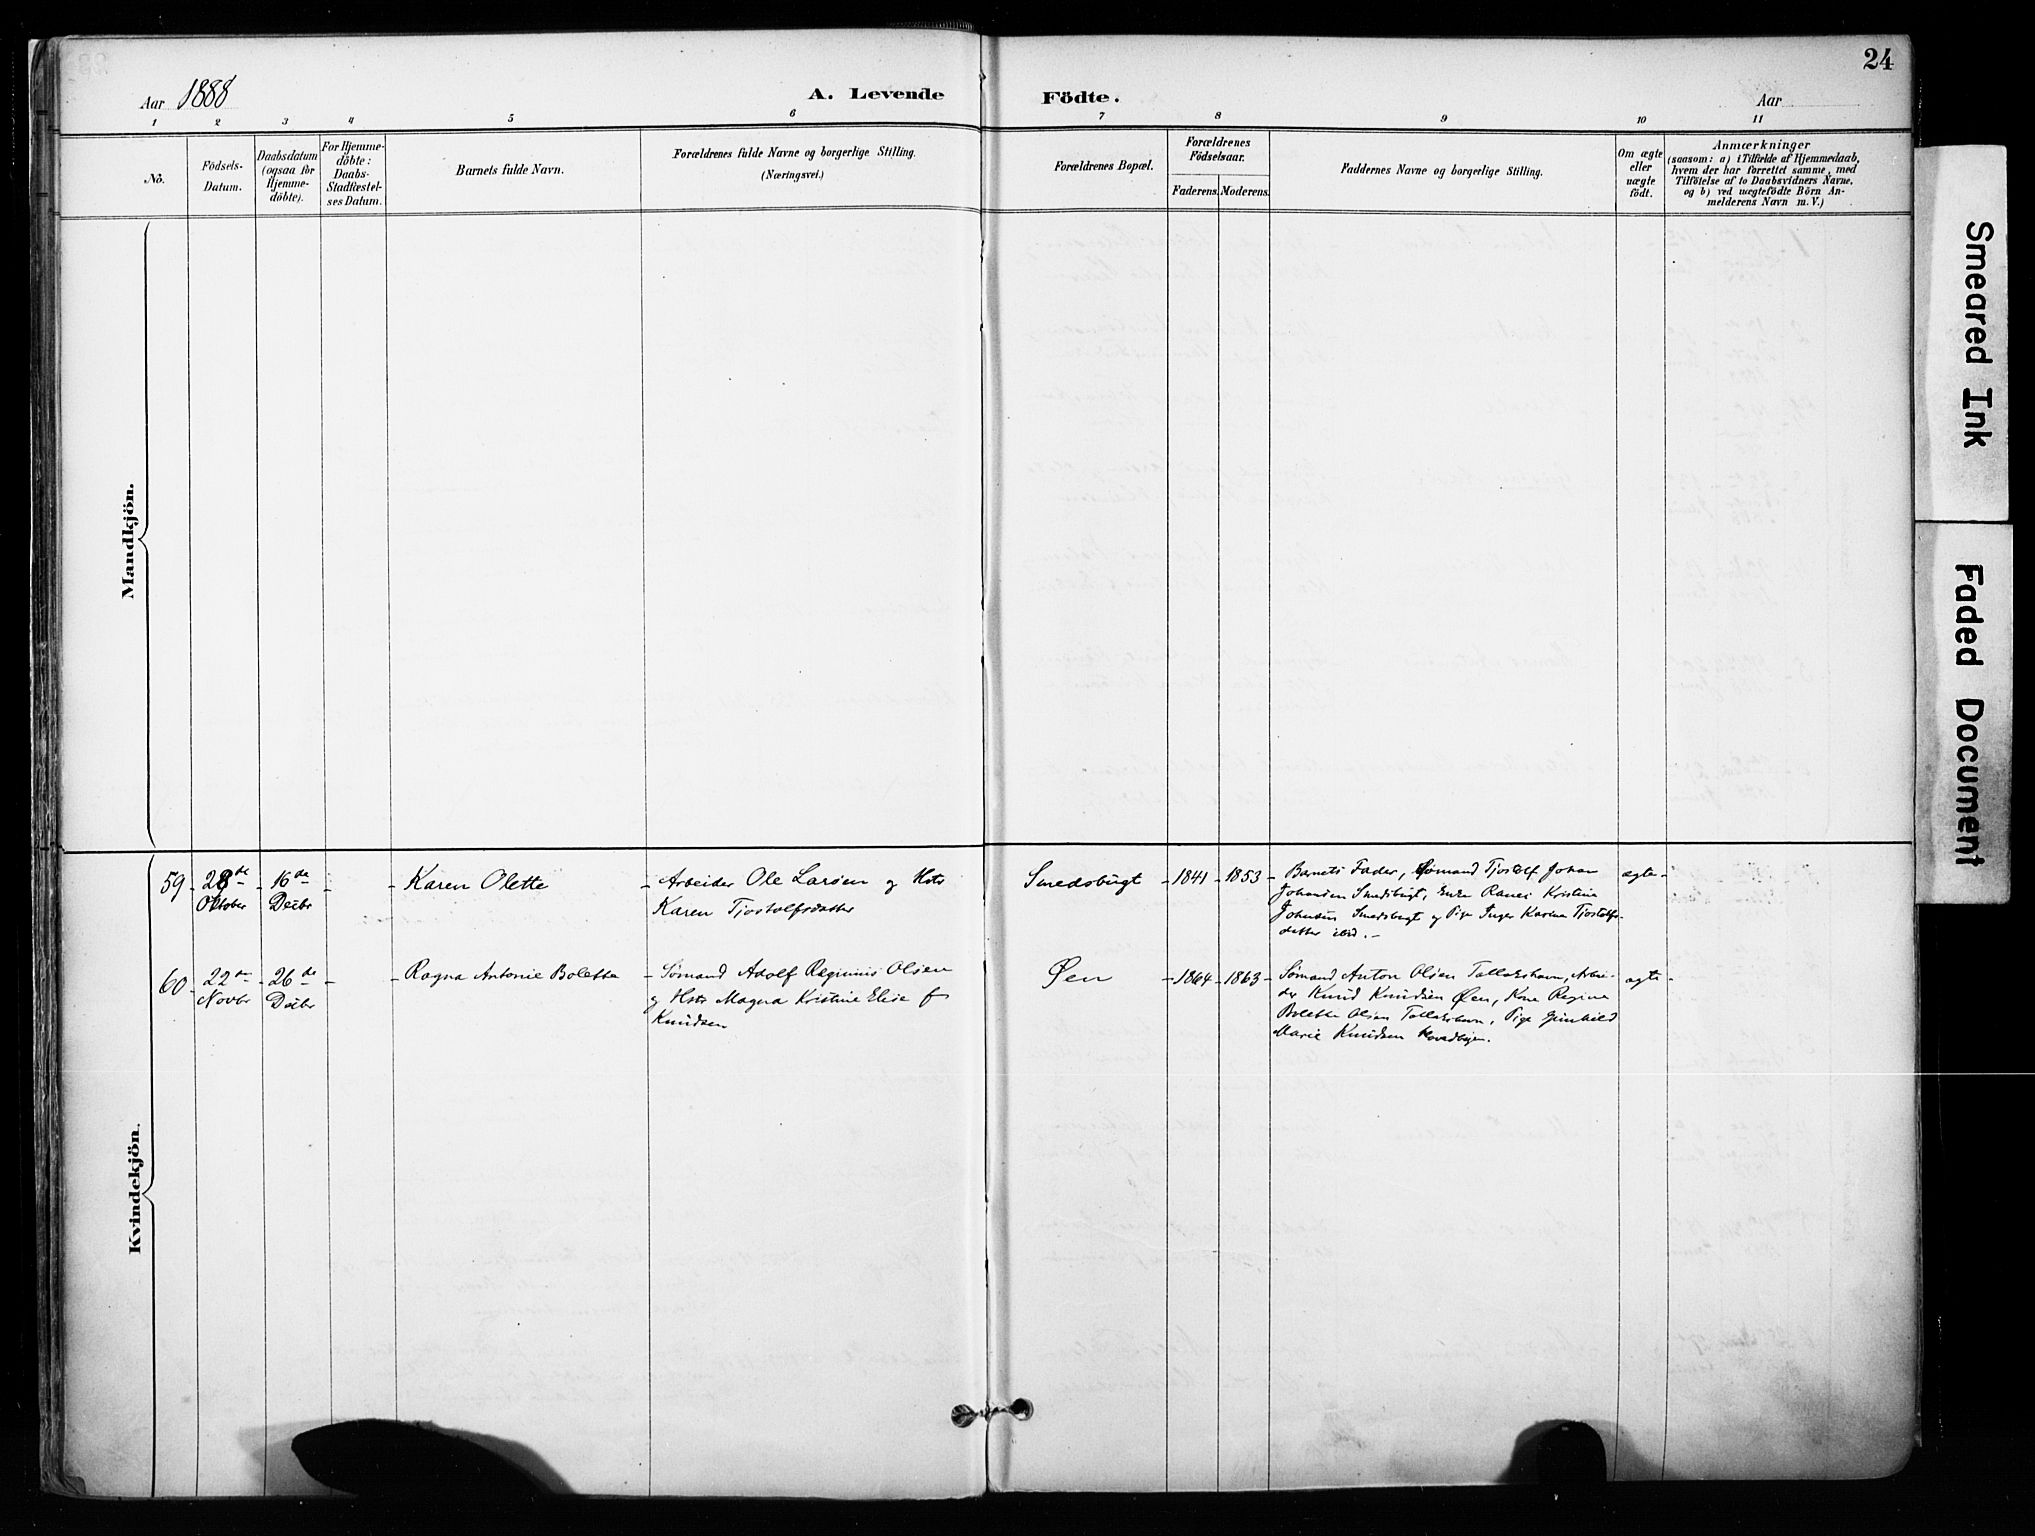 24
Aar 1888
A. Levende Födte.
Aar
1 2 3 4 5 6 7 8 9 10 11
No.
Födsels-
Datum.
Daabsdatum
(ogsaa for
Hjemme-
döbte).
For Hjemme-
döbte:
Daabs-
Stadfæstel-
ses Datum.
Barnets fulde Navn.
Forældrenes fulde Navne og borgerlige Stilling.
(Næringsvei.)
Forældrenes Bopæl.
Forældrenes
Födselsaar.
Faderens. Moderens.
Faddernes Navne og borgerlige Stilling.
Om ægte
eller
uægte
födt.
Anmærkninger
(saasom: a) i Tilfælde af Hjemmedaab,
hvem der har forrettet samme, med
Tilföielse af to Daabsvidners Navne,
og b) ved uægtefödte Börn An-
melderens Navn m. V.)
Mandkjön.
Kvindekjön.
59 - 28de - 16de - - Karen Olette - Arbeider Ole Larsen og Hstr
Oktober Decbr
Karen Tjostolfsdatter
Smedsbugt - 1841 - 1853 - Barnets Fader, Sømand Tjostolf Johan
Johansen Smedsbugt, Enke Kristine
Johnsen Smedsbugt og Pige Inger Karine Tjostolfs-
datter ibid. -
ægte
60 - 22de - 26de - - Ragna Antonie Bolette - Sømand Adolf Reginius Olsen
Novbr Decbr
og Hstr Magna Kristine Elise f
Knudsen
Øen - 1864 - 1863 - Sømand Anton Olsen Tallakshavn, Arbei-
der Knud Knudsen Øen, Kone Regine
Bolette Olsen Tallakshavn, Pige Gunhild
Marie Knudsen Hovedbyen.
ægte
Smeared Ink
Faded Document